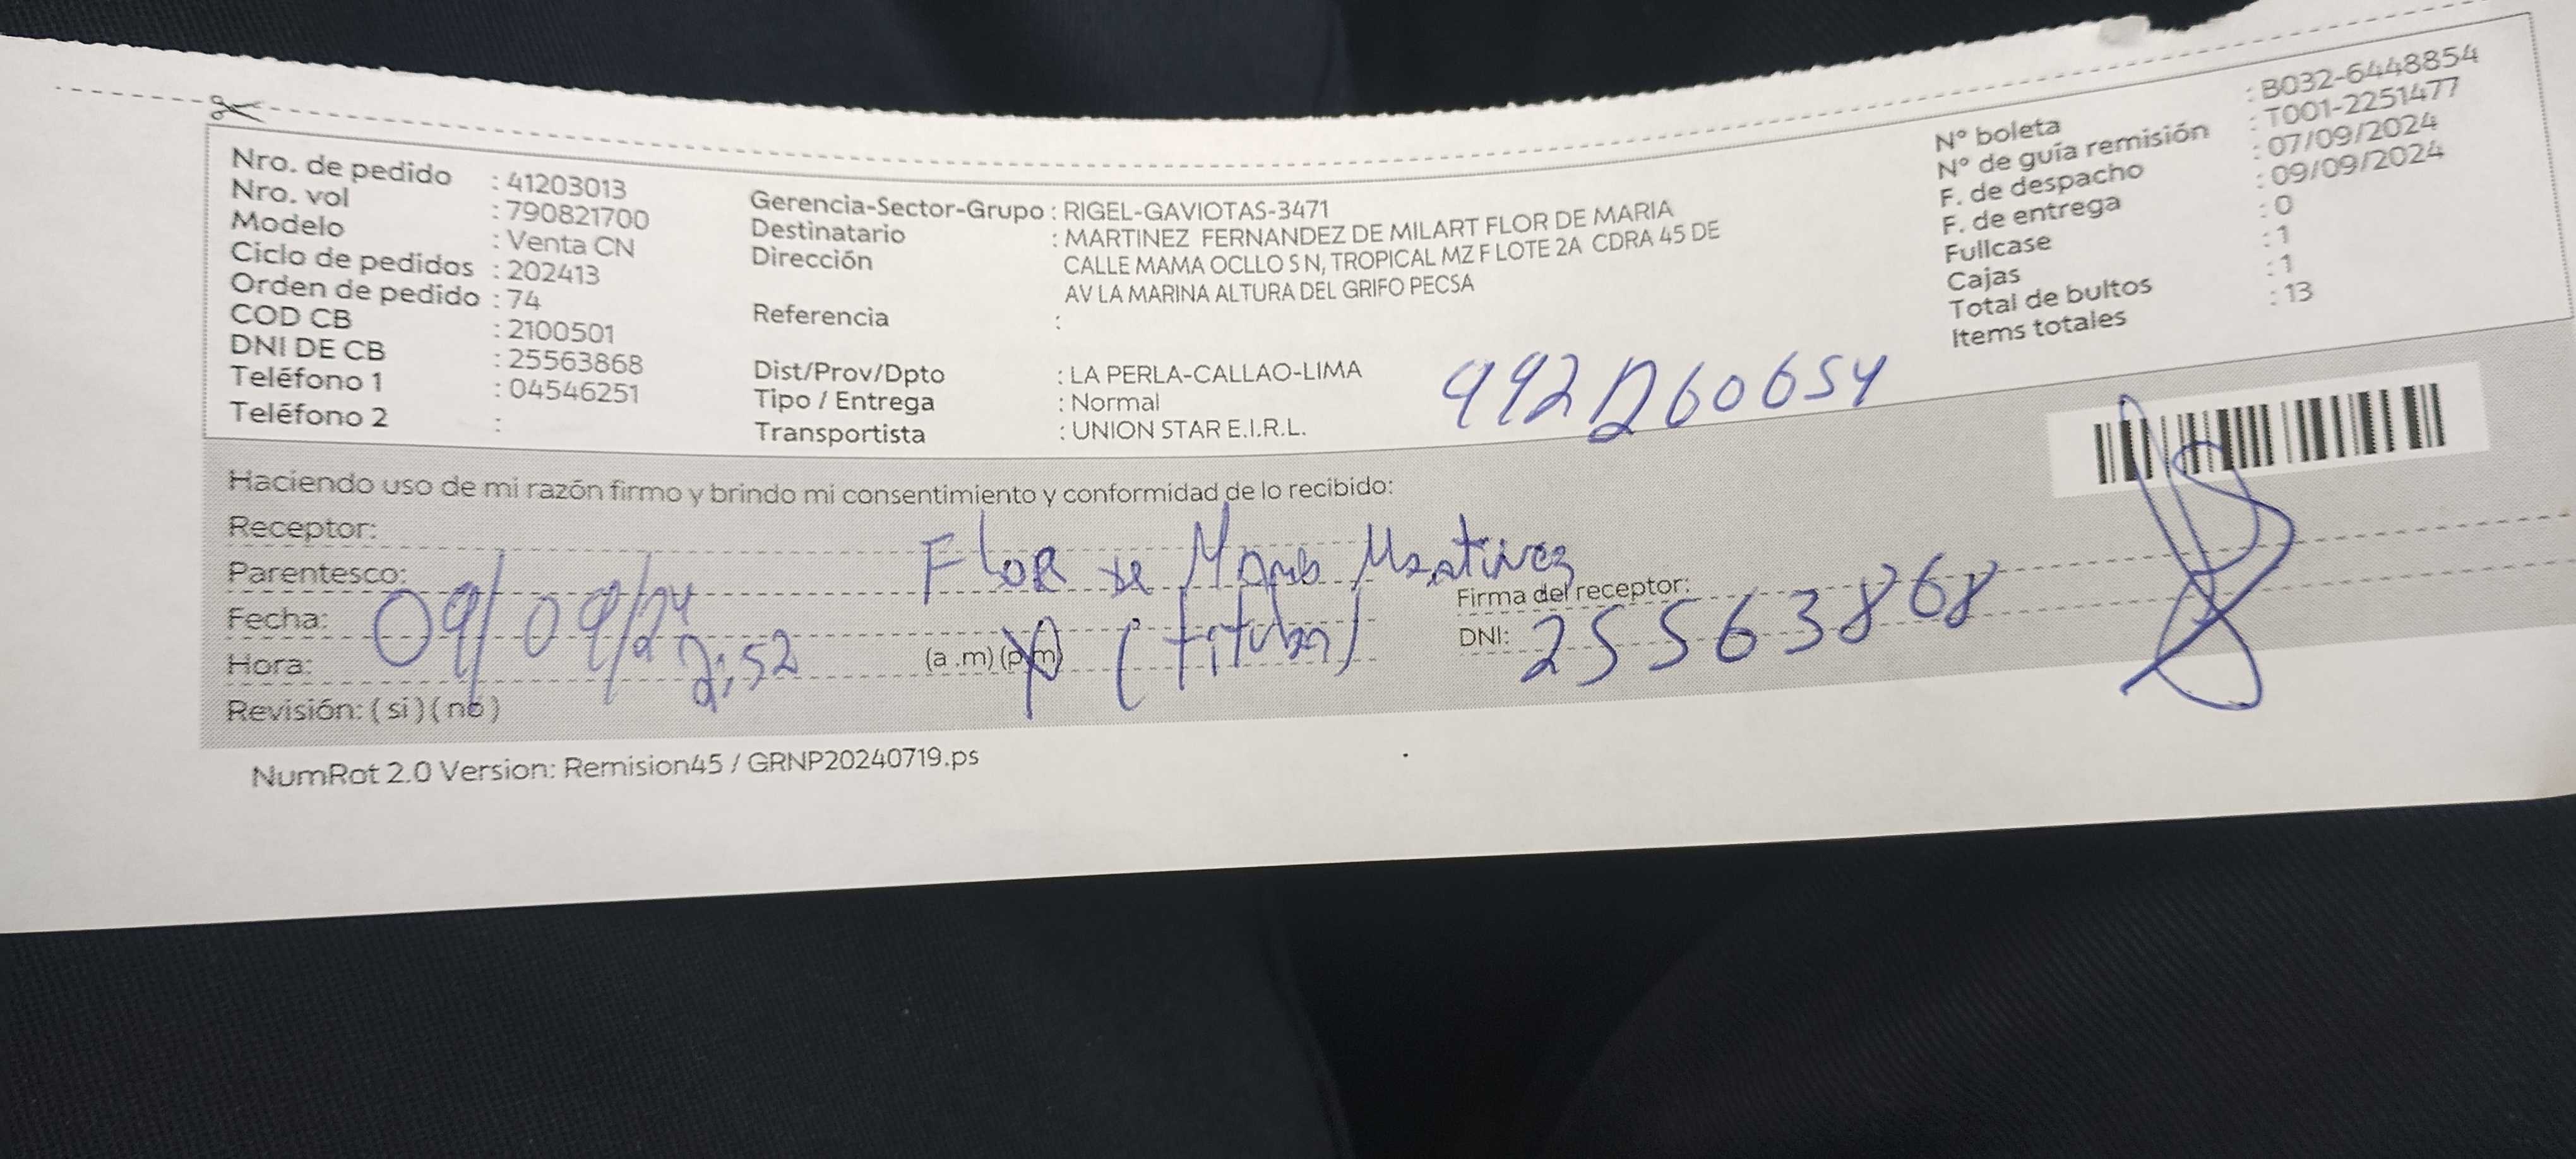 Nro. de pedido : 41203013
Nro. vol : 790821700
Modelo : Venta CN
Ciclo de pedidos : 202413
Orden de pedido : 74
COD CB : 2100501
DNI DE CB : 25563868
Teléfono 1 : 04546251
Teléfono 2 :
Gerencia-Sector-Grupo : RIGEL-GAVIOTAS-3471
Destinatario : MARTINEZ FERNANDEZ DE MILART FLOR DE MARIA
Dirección CALLE MAMA OCLLO S N, TROPICAL MZ F LOTE 2A CDRA 45 DE
AV LA MARINA ALTURA DEL GRIFO PECSA
Referencia :
Dist/Prov/Dpto : LA PERLA-CALLAO-LIMA
Tipo / Entrega : Normal
Transportista : UNION STAR E.I.R.L.
N° boleta : B032-6448854
N° de guía remisión : T001-2251477
F. de despacho : 07/09/2024
F. de entrega : 09/09/2024
Fullcase : 0
Cajas : 1
Total de bultos : 1
Items totales : 13
Haciendo uso de mi razón firmo y brindo mi consentimiento y conformidad de lo recibido:
Receptor: Flor de Maria Martinez
Parentesco: (titular)
Fecha: 09/09/24
Hora: 2:52 (a .m) (p.m)
Revisión: ( si ) ( no )
Firma del receptor:
DNI: 25563868
NumRot 2.0 Version: Remision45 / GRNP20240719.ps